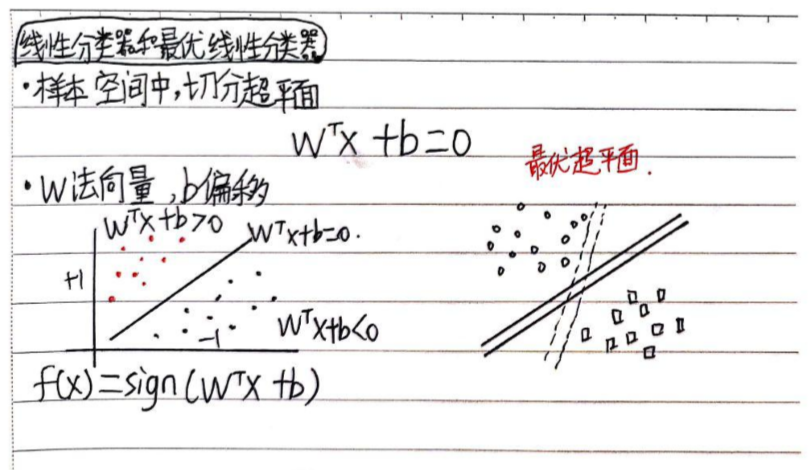 线性分类器和最优线性分类器
·样本空间中,切分超平面
WᵀX+b=0
最优超平面.
·W法向量,b偏移
WᵀX+b>0
WᵀX+b=0.
+1
-1
WᵀX+b<0
f(x)=sign(WᵀX+b)